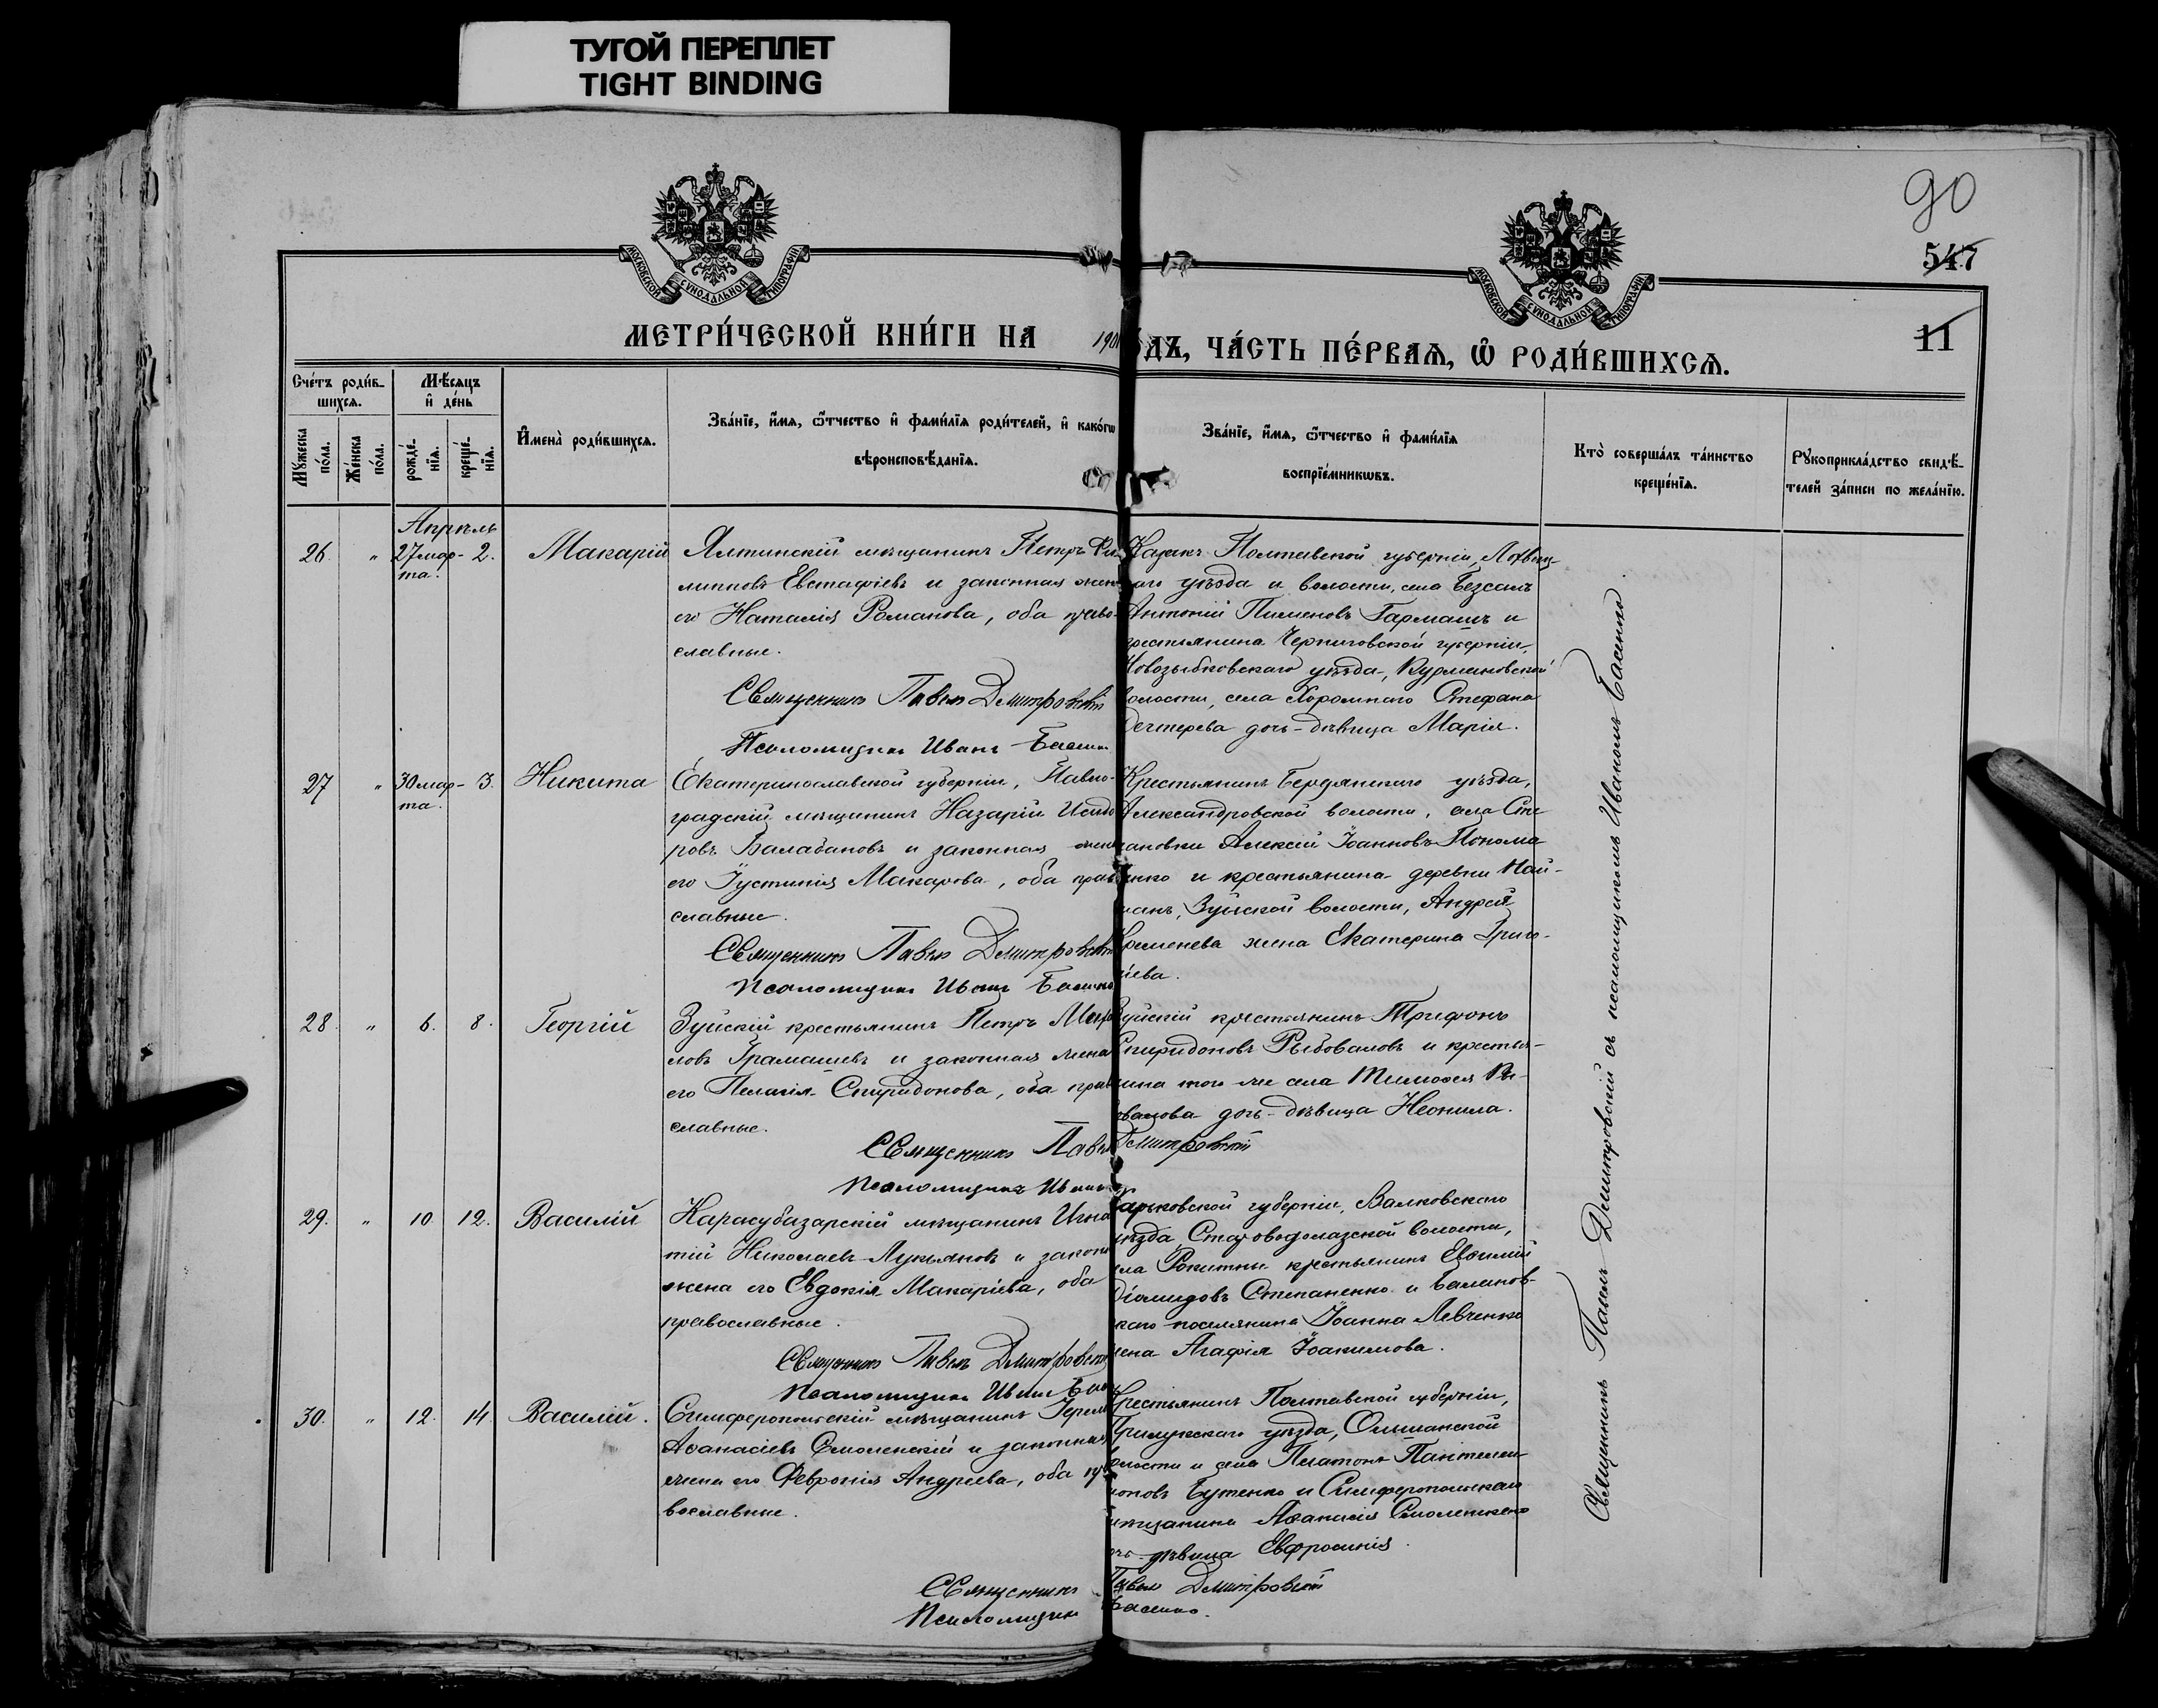 ТУГОЙ ПЕРЕПЛЕТ
TIGHT BINDING
90
547
11
МОСКОВСКОЙ СѴНОДАЛЬНОЙ ТИПОГРАФІИ
МОСКОВСКОЙ СѴНОДАЛЬНОЙ ТИПОГРАФІИ
МЕТРИ́ЧЕСКОЙ КНИ́ГИ НА
ДЪ, ЧА́СТЬ ПЕ́РВАѦ, Ѡ҆ РОДИ́ВШИХСѦ.
Сче́тъ роди́в-
шихсѧ.
Мѣ́сѧцъ
и҆ де́нь
Мꙋ́жеска
по́ла.
Же́нска
по́ла.
рожде́-
нїѧ.
креще́-
нїѧ.
И҆мена̀ роди́вшихсѧ.
Зва́нїе, и҆́мѧ, ѻ҆́тчество и҆ фами́лїѧ роди́телей, и҆ како́гѡ
вѣроисповѣ́данїѧ.
Зва́нїе, и҆́мѧ, ѻ҆́тчество и҆ фами́лїѧ
воспрїе́мникѡвъ.
Кто̀ соверша́лъ та́инство
креще́нїѧ.
Рꙋкоприкла́дство свидѣ́-
телей за́писи по жела́нїю.
Апрѣль
26. " 27 мар- 2. Макарій
та.
Ялтинскій мѣщанинъ Петръ Фи-
липповъ Евстафіевъ и законная жен
его Наталія Романова, оба право-
славные.
Священникъ Павелъ Дмитровскій
Псаломщикъ Иванъ
Казакъ Полтавской губерніи, Лохвиц-
каго уѣзда и волости, села Безсалъ
Антоній Пименовъ Гармашъ и
крестьянина Черниговской губерніи,
Новозыбковскаго уѣзда,
волости, села Хоромнаго Стефана
Дегтерева дочь-дѣвица Марія.
27 " 30 мар- 3. Никита
та.
Екатеринославской губерніи, Павло-
градскій мѣщанинъ Назарій Исидо
ровъ Балабановъ и законная жен
его Іустинія Макарова, оба прав
славные.
Священникъ Павелъ Дмитровскій
Псаломщикъ Иванъ Басенко
Крестьянинъ Бердянскаго уѣзда,
Александровской волости, села Сте
пановки Алексій Іоанновъ Понома
ренко и крестьянина деревни Най-
манъ, Зуйской волости, Андрея
Кременева жена Екатерина Григо-
ріева.
28. " 6. 8. Георгій
Зуйскій крестьянинъ Петръ
ловъ Грамашевъ и законная жена
его Пелагія Спиридонова, оба прав
славные.
Священникъ Павелъ Дмитровскій
Псаломщикъ Иванъ
Зуйскій крестьянинъ Трифонъ
Спиридоновъ Рыбоваловъ и крестья-
нина того же села Тимоѳея Ры-
бовалова дочь-дѣвица Неонила.
29. " 10. 12. Василій
Карасубазарскій мѣщанинъ Игна
тій Николаевъ Лукьяновъ и законн
жена его Евдокія Макаріева, оба
православные.
Священникъ Павелъ Дмитровскій
Псаломщикъ Иванъ
Харьковской губерніи, Валковскаго
уѣзда, Староводолазской волости,
села Рокитны крестьянинъ Евѳимій
Діомидовъ Степаненко и
поселянина Іоанна Левченко
жена Агафія Іоакимова.
30. " 12. 14. Василій.
Симферопольскій мѣщанинъ Іерем
Аѳанасіевъ Смоленскій и законная
жена его Февронія Андреева, оба пра
вославные.
Крестьянинъ Полтавской губерніи,
Прилукскаго уѣзда, Ольшанской
волости и села Платонъ Пантелеи-
моновъ Бутенко и Симферопольскаго
мѣщанина Аѳанасія Смоленскаго
дочь дѣвица Евфросинія.
Священникъ Павелъ Дмитровскій
Псаломщикъ Басенко.
Священникъ Павелъ Дмитровскій съ псаломщикомъ Иваномъ Басенко.